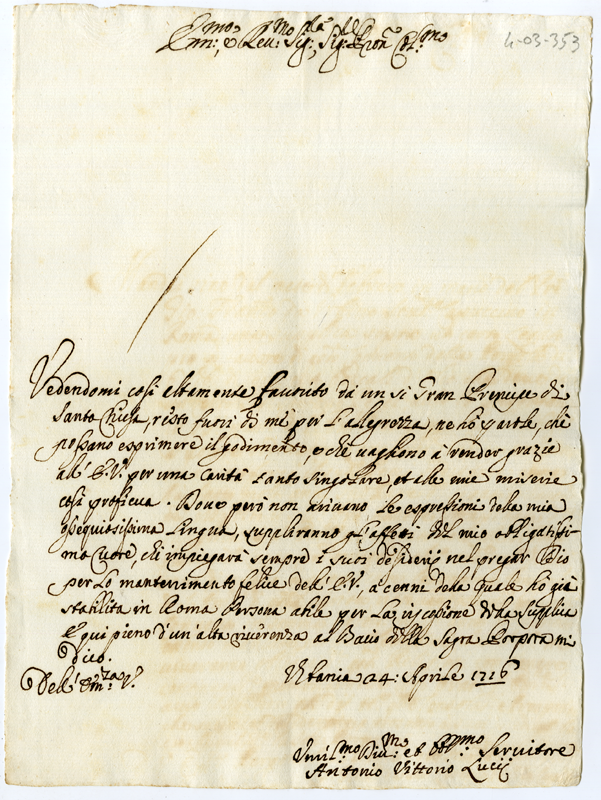 Em.mo, e Rev.mo Sig.r, Sig.r Pron Col.mo
4-03-353
Vedendomi così altamente favorito da un si Gran Prencipe di
Santa Chiesa, resto fuori di mè per l'allegrezza, ne hò parole, che
possano esprimere il godimento, e che vagliono à render grazie
all' E. V. per una Carità tanto singolare, et alle mie miserie
così proficua. Dove però non arivano le espressioni della mia
ossequiosissima lingua, suppliranno gl'affetti del mio obligatissi-
mo Cuore, che impiegarà sempre i suoi desiderij nel pregar Dio
per lo mantenimento felice dell' E. V., a cenni della quale hò già
stabilita in Roma Persona abile per la riscossione della supplica
E qui pieno d'un' alta riverenza al Bacio della Sagra Porpora mi
dico.
Dell' Em.za V.
Urbania 24: Aprile 1716
Umil.mo Div.mo et Obl.mo Servitore
Antonio Vittorio Lucij